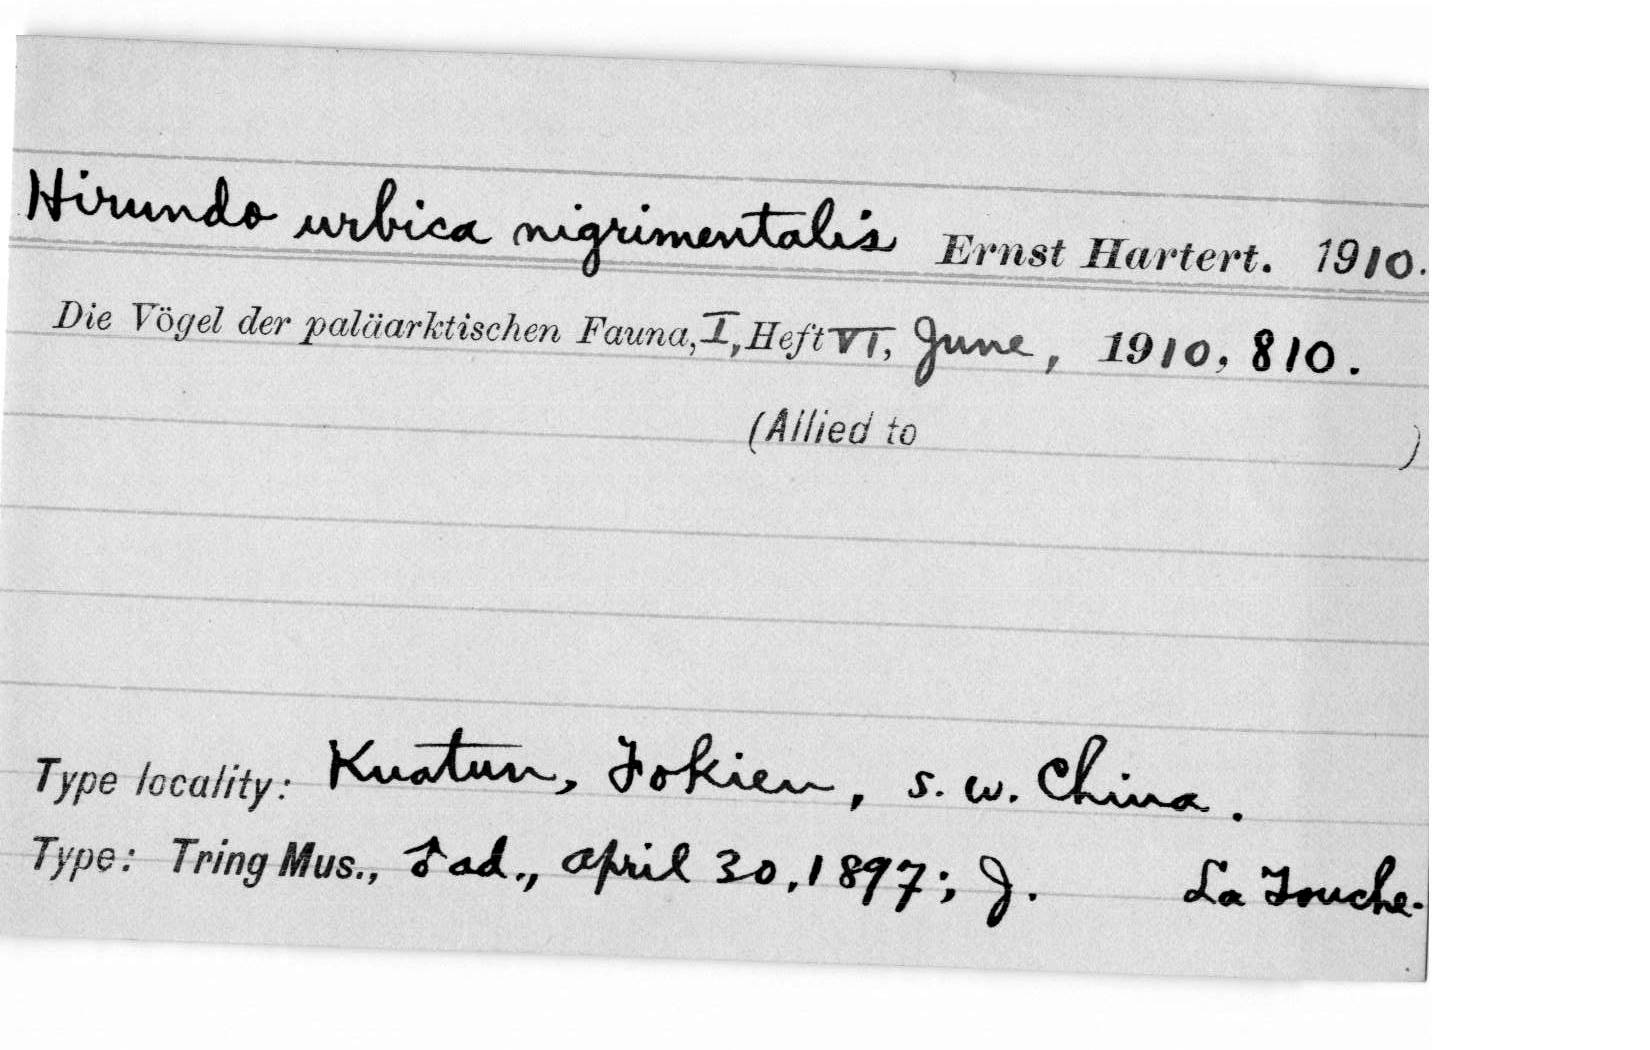 Hirundo urbica nigrimentalis Ernst Hartert. 1910.
Die Vögel der paläarktischen Fauna, I, Heft VI, June, 1910, 810.
(Allied to )
Type locality: Kuatun, Fokien, s. w. China.
Type: Tring Mus., ♂ ad., April 30, 1897; J. La Touche.